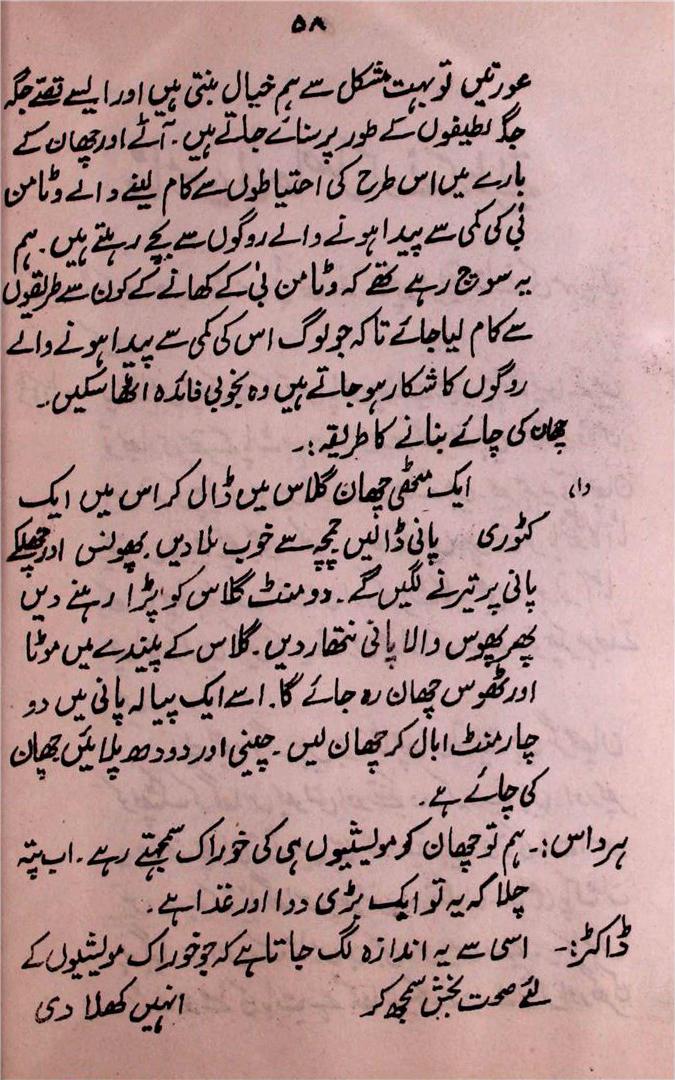 ۵۸
عورتیں تو بہت مشکل سے ہم خیال بنتی ہیں اور ایسے قصے جگہ
جگہ لطیفوں کے طور پر سنائے جاتے ہیں۔ آٹے اور چھان کے
بارے میں اس طرح کی احتیاطوں سے کام لینے والے وٹامن
بی کی کمی سے پیدا ہونے والے روگوں سے بچے رہتے ہیں۔ ہم
یہ سوچ رہے تھے کہ وٹامن بی کے کھانے کے کون سے طریقوں
سے کام لیا جائے تاکہ جو لوگ اس کی کمی سے پیدا ہونے والے
روگوں کا شکار ہو جاتے ہیں وہ بخوبی فائدہ اٹھا سکیں۔
چھان کی چائے بنانے کا طریقہ:۔
(۱) ایک مٹھی چھان گلاس میں ڈال کر اس میں ایک
کٹوری پانی ڈالیں چمچہ سے خوب ہلا دیں۔ پھونس اور چھلکے
پانی پر تیرنے لگیں گے۔ دو منٹ گلاس کو پڑا رہنے دیں
پھر پھوس والا پانی نتھار دیں۔ گلاس کے پیندے میں موٹا
اور ٹھوس چھان رہ جائے گا۔ اسے ایک پیالہ پانی میں دو
چار منٹ ابال کر چھان لیں۔ چینی اور دودھ ملائیں چھان
کی چائے ہے۔
ہرداس:۔ ہم تو چھان کو مویشیوں ہی کی خوراک سمجھتے رہے۔ اب پتہ
چلا کہ یہ تو ایک بڑی دوا اور غذا ہے۔
ڈاکٹر:۔ اسی سے یہ اندازہ لگ جاتا ہے کہ جو خوراک مویشیوں کے
لئے صحت بخش سمجھ کر انہیں کھلا دی